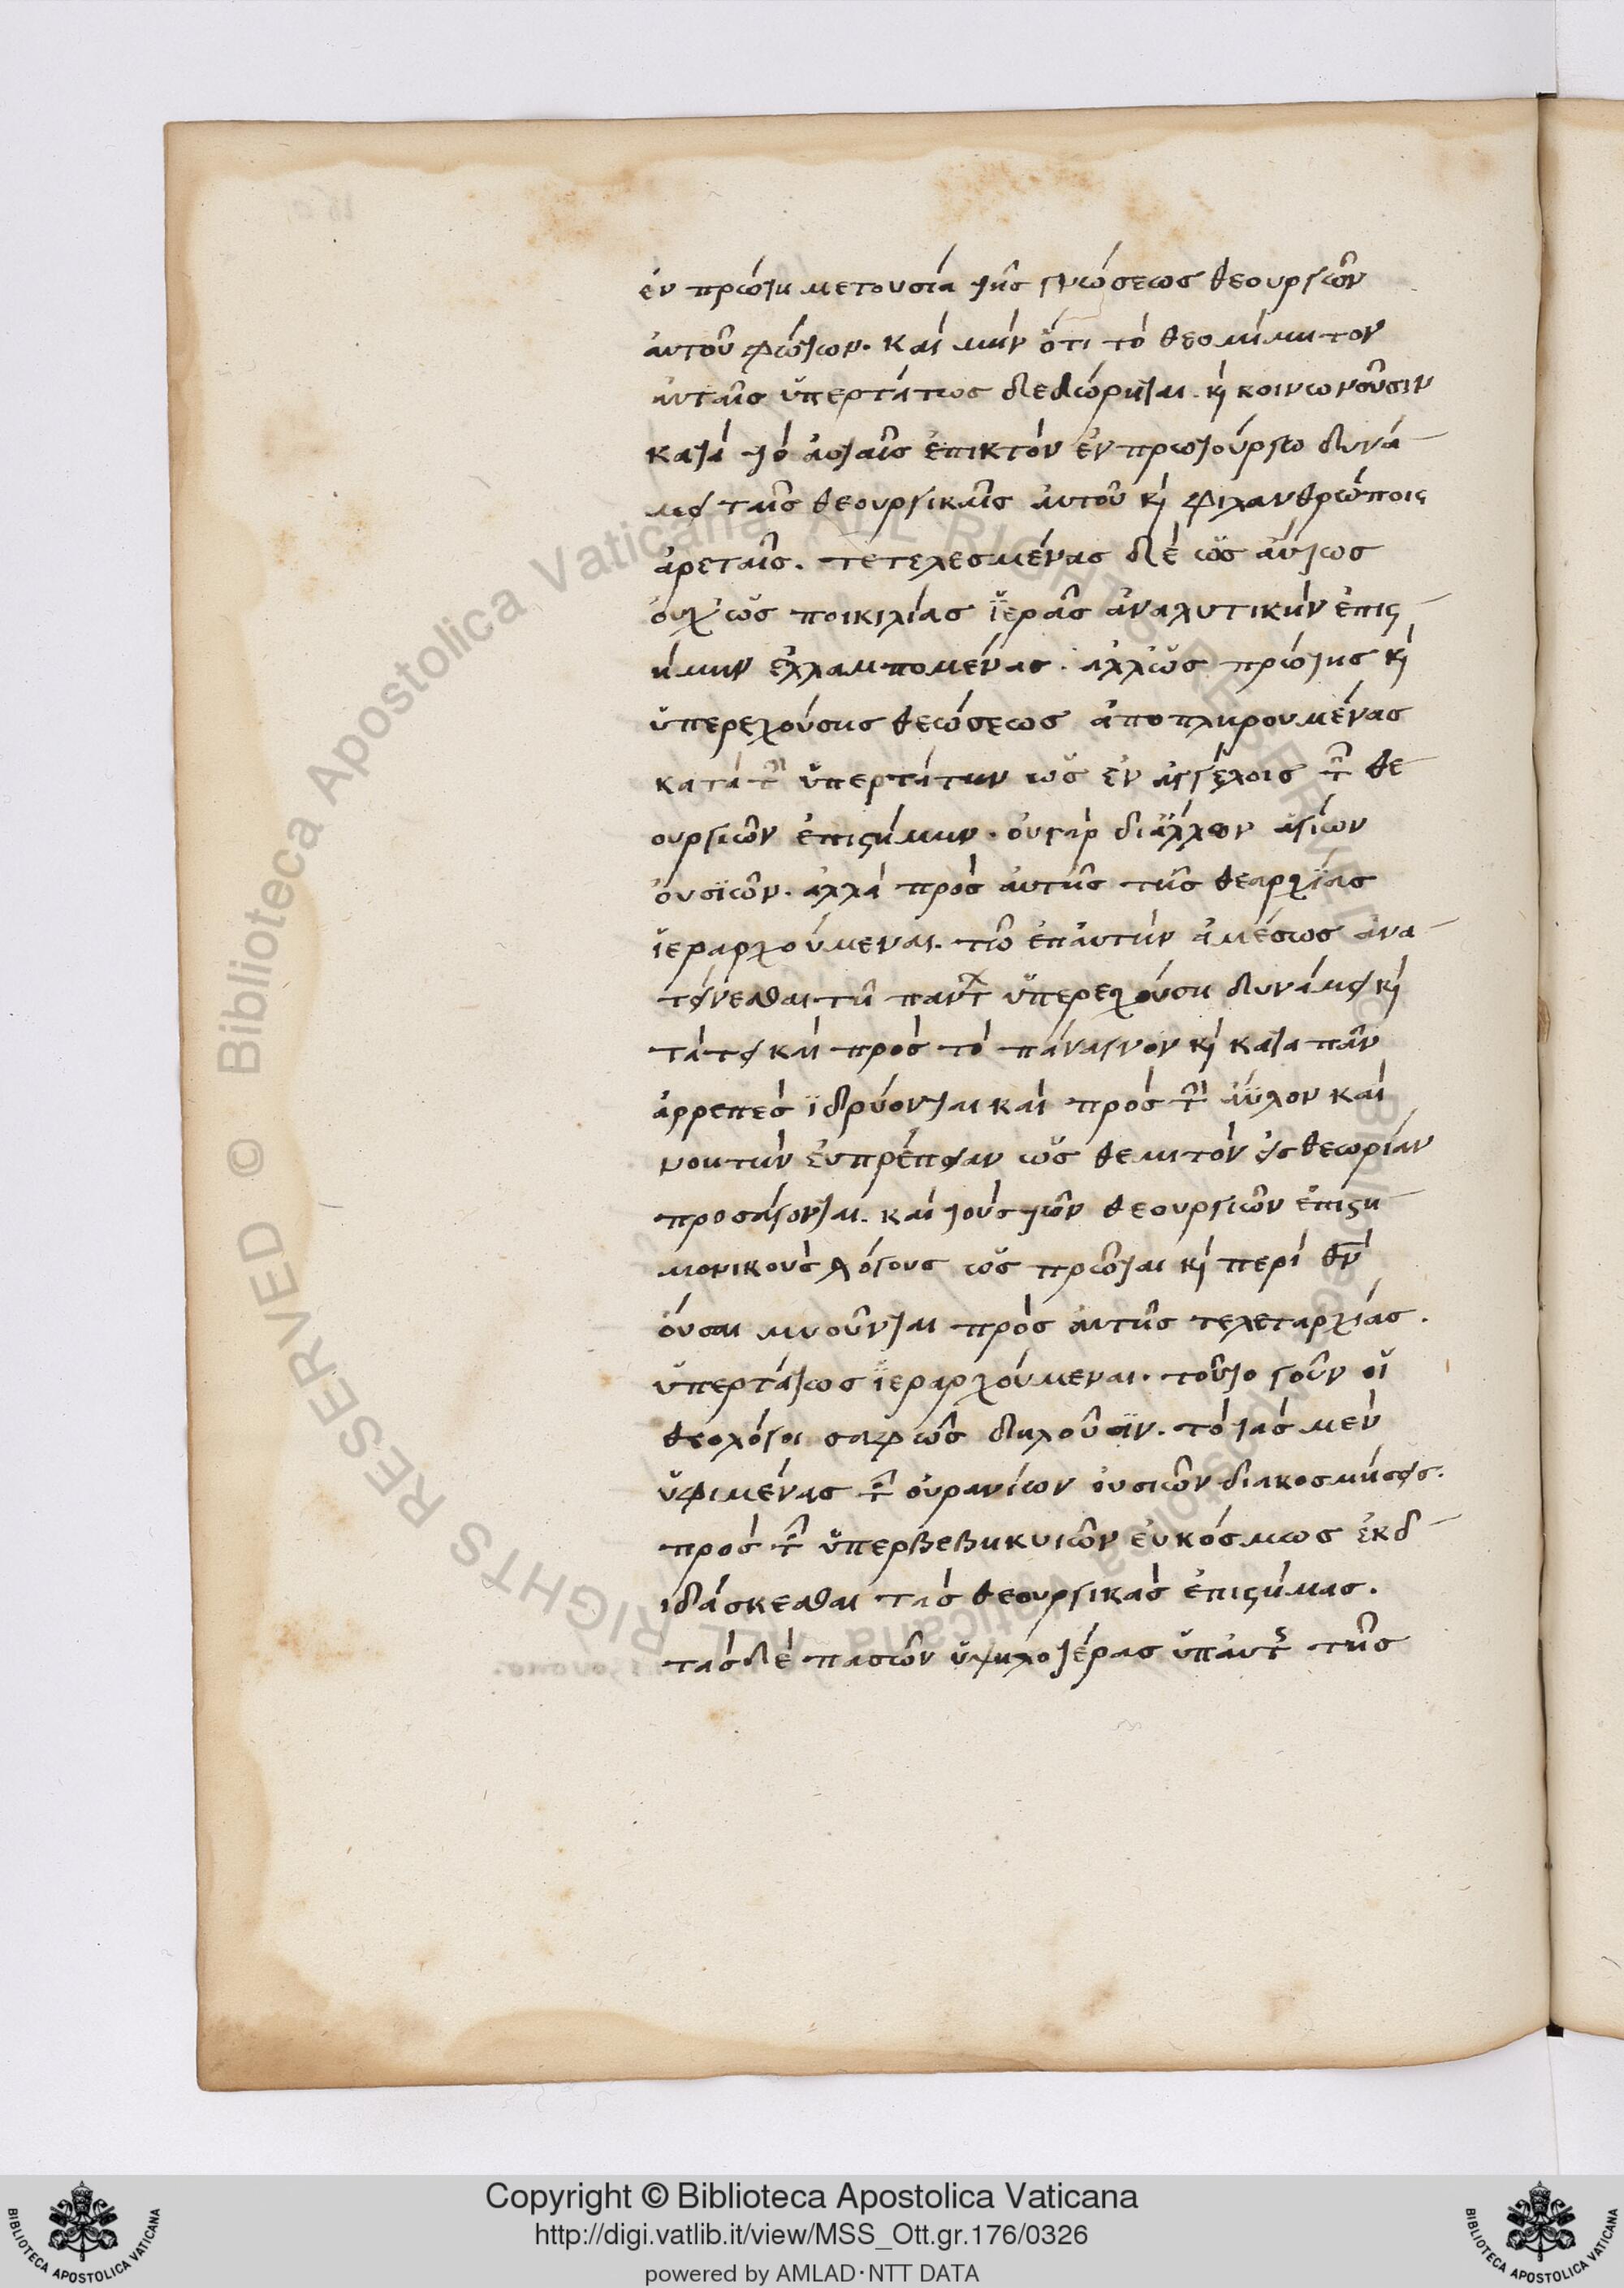 ἐν πρώτη μετουσία τῆς γνώσεως θεουργιῶν
ἀυτοῦ φώτων. καὶ μὴν ὅτι τὸ θεομίμητον
ἀυταῖς ὑπερτάτως δεδώρηται. κὶ κοινωνοῦσιν
κατὰ τὸ ἀυταῖς ἐφικτὸν ἐν πρωτούργω δυνά
μει ταῖς θεουργικαῖς ἀυτοῦ κὶ φιλανθρώποις
ἀρεταῖς. τετελεσμένας δὲ ὡσ ἀύτως
ὀυχ' ὡς ποικιλίας ἱερᾶς ἀναλυτικὴν ἐπις
ήμην ἐλλαμπομένας. ἀλλ' ὡς πρώτης κὶ
ὑπερεχούσης θεώσεως ἀποπληρουμένας
κατὰ τὴν ὑπερτάτην ὡς ἐν ἀγγέλοις τῶν θε
ουργιῶν ἐπιςήμην. ὀυγὰρ δι' ἄλλων ἁγίων
ὀυσιῶν. ἀλλὰ πρὸς ἀυτῆς τῆς θεαρχίας
ἱεραρχούμεναι. τῶ ἐπ' ἀυτὴν ἀμέσως ἀνα
τείνεσθαι τῆ πάντων ὑπερεχούση δυνάμει κὶ
τάξει καὶ πρὸς τὸ πάναγνον κὶ κατα πᾶν
ἀρρεπὲς ἱδρύονται καὶ πρὸς τὴν ἄϋλον καὶ
νοητὴν ἐυπρέπειαν ὡς θεμιτὸν εἰς θεωρίαν
προσάγονται. καὶ τοὺς τῶν θεουργιῶν ἐπιςη
μονικοὺς λόγους ὡς πρῶται κὶ περὶ θν̅
ὀύσαι μυοῦνται πρὸς ἀυτῆς τελεταρχίας.
ὑπερτάτως ἱεραρχούμεναι. τοῦτο γοῦν οἱ
θεολόγοι σαφῶς δηλοῦσϊν. τὸ τὰς μὲν
ὑφιμένας τῶν ὀυρανίων ὀυσιῶν διακοσμήσεις.
πρὸς τῶν ὑπερβεβηκυιῶν ἐυκόσμως ἐκδ
ιδάσκεσθαι τὰς θεουργικὰς ἐπιςήμας.
τὰσδὲ πασῶν ὑψηλοτέρας ὑπ' ἀυτῆς τῆς